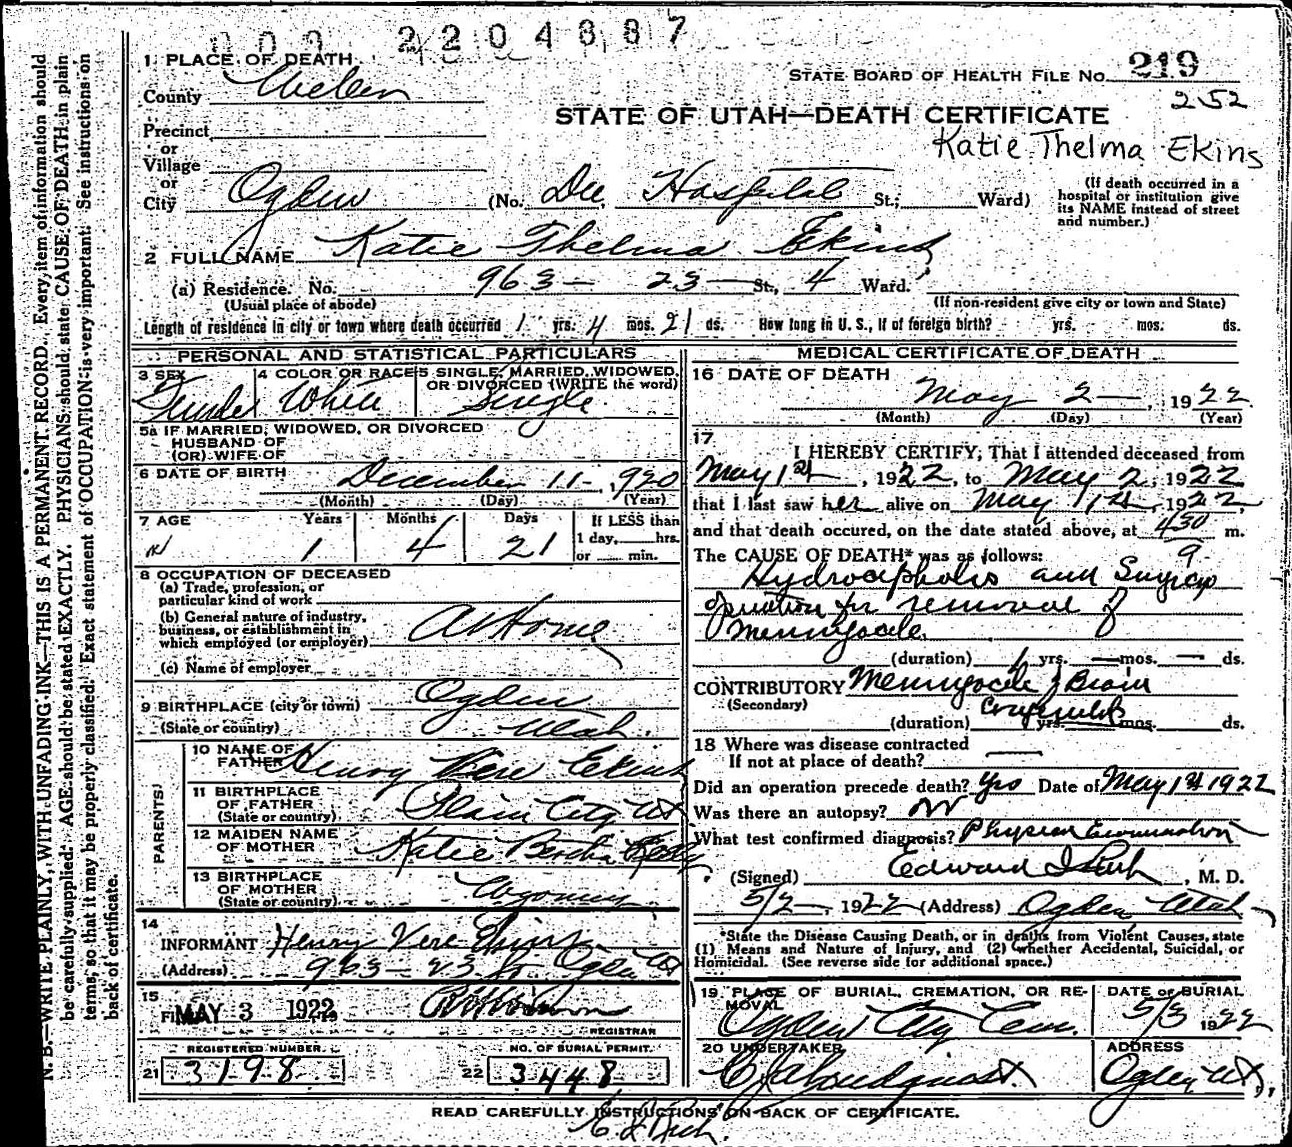 2204887
1 PLACE OF DEATH
STATE BOARD OF HEALTH FILE No. 219
County Weber
252
STATE OF UTAH—DEATH CERTIFICATE
Precinct
or
Katie Thelma Ekins
Village
or
City Ogden (No. Dee Hospital St.; Ward)
(If death occurred in a hospital or institution give its NAME instead of street and number.)
2 FULL NAME Katie Thelma Ekins
(a) Residence. No. 963— 23— St., 4 Ward.
(Usual place of abode) (If non-resident give city or town and State)
Length of residence in city or town where death occurred 1 yrs. 4 mos. 21 ds. How long in U. S., if of foreign birth? yrs. mos. ds.
PERSONAL AND STATISTICAL PARTICULARS
3 SEX Female
4 COLOR OR RACE White
5 SINGLE, MARRIED, WIDOWED, OR DIVORCED (WRITE the word) Single
5a IF MARRIED, WIDOWED, OR DIVORCED
HUSBAND OF
(OR) WIFE OF
6 DATE OF BIRTH December 11-, 1920
(Month) (Day) (Year)
7 AGE Years Months Days If LESS than
1 4 21 1 day, hrs.
or min.
8 OCCUPATION OF DECEASED
(a) Trade, profession, or
particular kind of work
(b) General nature of industry,
business, or establishment in
which employed (or employer) At Home
(c) Name of employer
9 BIRTHPLACE (city or town) Ogden
(State or country) Utah.
PARENTS
10 NAME OF FATHER Henry Vere Ekins
11 BIRTHPLACE OF FATHER (State or country) Plain City Ut
12 MAIDEN NAME OF MOTHER Katie Bertha
13 BIRTHPLACE OF MOTHER (State or country) Wyoming
14
INFORMANT Henry Vere Ekins
(Address) 963— 23 St Ogden Ut
15
MAY 3 1922
REGISTRAR
REGISTERED NUMBER. NO. OF BURIAL PERMIT.
21 3198 22 3448
MEDICAL CERTIFICATE OF DEATH
16 DATE OF DEATH
May 2—, 1922
(Month) (Day) (Year)
17
I HEREBY CERTIFY, That I attended deceased from
May 1st, 1922, to May 2, 1922
that I last saw her alive on May 1st, 1922,
and that death occured, on the date stated above, at 430 m.
The CAUSE OF DEATH* was as follows:
Hydrocephalis and Surgical
operation for removal of
Meningocele
(duration) 1 yrs. — mos. — ds.
CONTRIBUTORY Meningocele of Brain
(Secondary) Congenital
(duration) yrs. mos. ds.
18 Where was disease contracted
If not at place of death? —
Did an operation precede death? Yes Date of May 1st 1922
Was there an autopsy? No
What test confirmed diagnosis? Physical Examination
(Signed) Edward I Rich, M. D.
5/2—, 1922 (Address) Ogden Utah
*State the Disease Causing Death, or in deaths from Violent Causes, state
(1) Means and Nature of Injury, and (2) whether Accidental, Suicidal, or
Homicidal. (See reverse side for additional space.)
19 PLACE OF BURIAL, CREMATION, OR RE-
MOVAL
Ogden City Cem.
DATE OF BURIAL
5/3 1922
20 UNDERTAKER
ADDRESS
Ogden Ut,
READ CAREFULLY INSTRUCTIONS ON BACK OF CERTIFICATE.
E. I. Rich.
N. B.—WRITE PLAINLY, WITH UNFADING INK—THIS IS A PERMANENT RECORD. Every item of information should
be carefully supplied. AGE should be stated EXACTLY. PHYSICIANS should state CAUSE OF DEATH in plain
terms, so that it may be properly classified. Exact statement of OCCUPATION is very important. See instructions on
back of certificate.